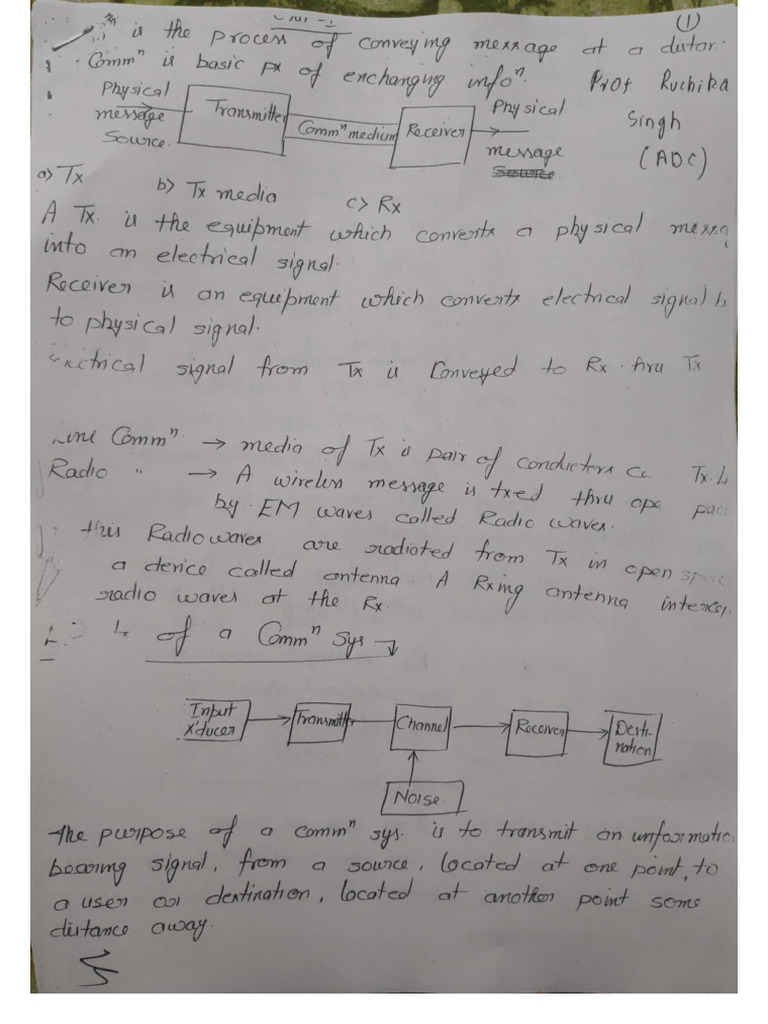 (1)
is the process of conveying message at a distan
Commⁿ is basic px of enchanging infoⁿ. Prof Ruchika
Singh
(ADC)
Physical
message
Source.
Transmitter
Commⁿ medium
Receiver
Physical
message
Source
a) Tx
b) Tx media
c) Rx
A Tx. is the equipment which converts a physical messa
into an electrical signal.
Receiver is an equipment which converts electrical signal
to physical signal.
signal from Tx is Conveyed to Rx. thru Tx
Line Commⁿ → media of Tx is pair of conductors
Radio " → A wireless message is txed thru
by EM waves called Radio waves.
this Radiowaves are radiated from Tx in open
a device called antenna. A Rxing antenna
radio waves at the Rx.
of a Commⁿ Sys
Input
X'ducer
Transmitter
Channel
Receiver
Desti-
nation
Noise.
The purpose of a commⁿ sys. is to transmit an unformatio
bearing signal, from a source, located at one point, to
a user or destination, located at another point some
distance away.